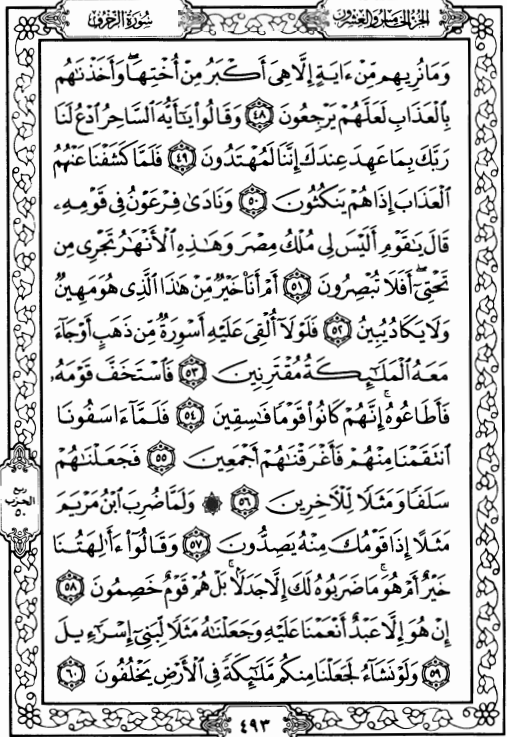 سُورَةُ الزُّخْرُفِ
الجُزْءُ الخَامِسُ وَالعِشْرُونَ
وَمَا نُرِيهِم مِّنْ ءَايَةٍ إِلَّا هِىَ أَكْبَرُ مِنْ أُخْتِهَا ۖ وَأَخَذْنَٰهُم
بِالْعَذَابِ لَعَلَّهُمْ يَرْجِعُونَ ٤٨ وَقَالُوا۟ يَٰٓأَيُّهَ السَّاحِرُ ادْعُ لَنَا
رَبَّكَ بِمَا عَهِدَ عِندَكَ إِنَّنَا لَمُهْتَدُونَ ٤٩ فَلَمَّا كَشَفْنَا عَنْهُمُ
الْعَذَابَ إِذَا هُمْ يَنكُثُونَ ٥٠ وَنَادَىٰ فِرْعَوْنُ فِى قَوْمِهِۦ
قَالَ يَٰقَوْمِ أَلَيْسَ لِى مُلْكُ مِصْرَ وَهَٰذِهِ الْأَنْهَٰرُ تَجْرِى مِن
تَحْتِىٓ ۖ أَفَلَا تُبْصِرُونَ ٥١ أَمْ أَنَا۠ خَيْرٌ مِّنْ هَٰذَا الَّذِى هُوَ مَهِينٌ
وَلَا يَكَادُ يُبِينُ ٥٢ فَلَوْلَآ أُلْقِىَ عَلَيْهِ أَسْوِرَةٌ مِّن ذَهَبٍ أَوْ جَآءَ
مَعَهُ الْمَلَٰٓئِكَةُ مُقْتَرِنِينَ ٥٣ فَاسْتَخَفَّ قَوْمَهُۥ
فَأَطَاعُوهُ ۚ إِنَّهُمْ كَانُوا۟ قَوْمًا فَٰسِقِينَ ٥٤ فَلَمَّآ ءَاسَفُونَا
انتَقَمْنَا مِنْهُمْ فَأَغْرَقْنَٰهُمْ أَجْمَعِينَ ٥٥ فَجَعَلْنَٰهُمْ
سَلَفًا وَمَثَلًا لِّلْءَاخِرِينَ ٥٦ ۞ وَلَمَّا ضُرِبَ ابْنُ مَرْيَمَ
مَثَلًا إِذَا قَوْمُكَ مِنْهُ يَصِدُّونَ ٥٧ وَقَالُوٓا۟ ءَأَٰلِهَتُنَا
خَيْرٌ أَمْ هُوَ ۚ مَا ضَرَبُوهُ لَكَ إِلَّا جَدَلًۢا ۚ بَلْ هُمْ قَوْمٌ خَصِمُونَ ٥٨
إِنْ هُوَ إِلَّا عَبْدٌ أَنْعَمْنَا عَلَيْهِ وَجَعَلْنَٰهُ مَثَلًا لِّبَنِىٓ إِسْرَٰٓءِيلَ
٥٩ وَلَوْ نَشَآءُ لَجَعَلْنَا مِنكُم مَّلَٰٓئِكَةً فِى الْأَرْضِ يَخْلُفُونَ ٦٠
ربع
الحزب
٥٠
٤٩٣